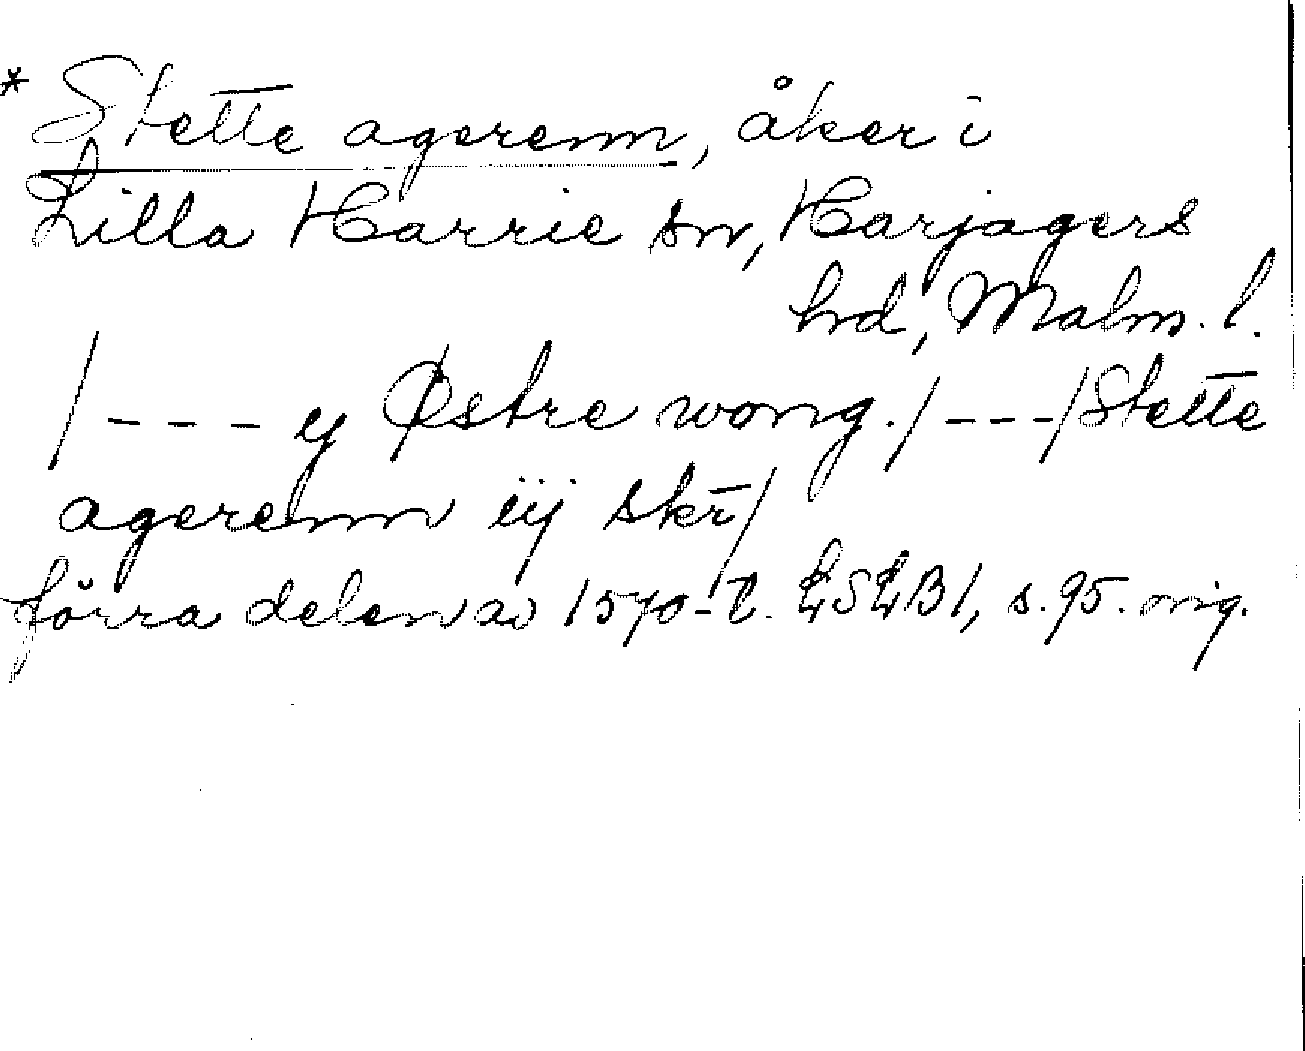 * Stette agerenn, åker i
Lilla Harrie sn, Harjagers
hrd, Malm. l.
/--- y Østre wong./---/Stette
agerenn iij skr̄/
förra delen av 1570-t. LSLB1, s.95. orig.